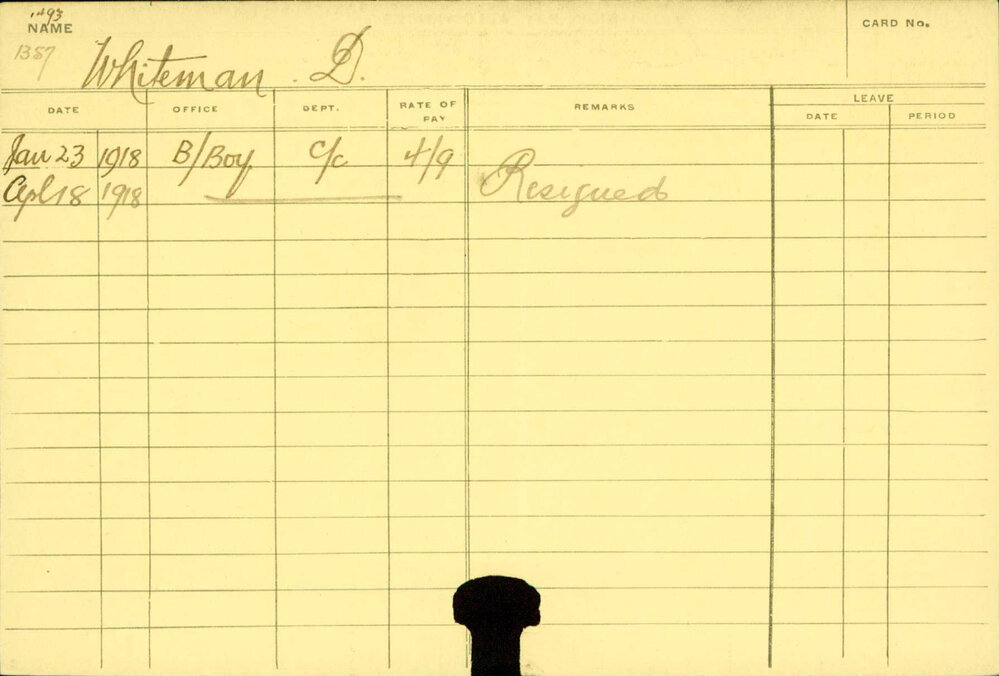 1493
NAME
1357
Whiteman . D.
CARD No.
DATE OFFICE DEPT. RATE OF PAY REMARKS LEAVE
DATE PERIOD
Jan 23 1918 B/Boy C/c 4/9
Apl 18 1918 Resigned